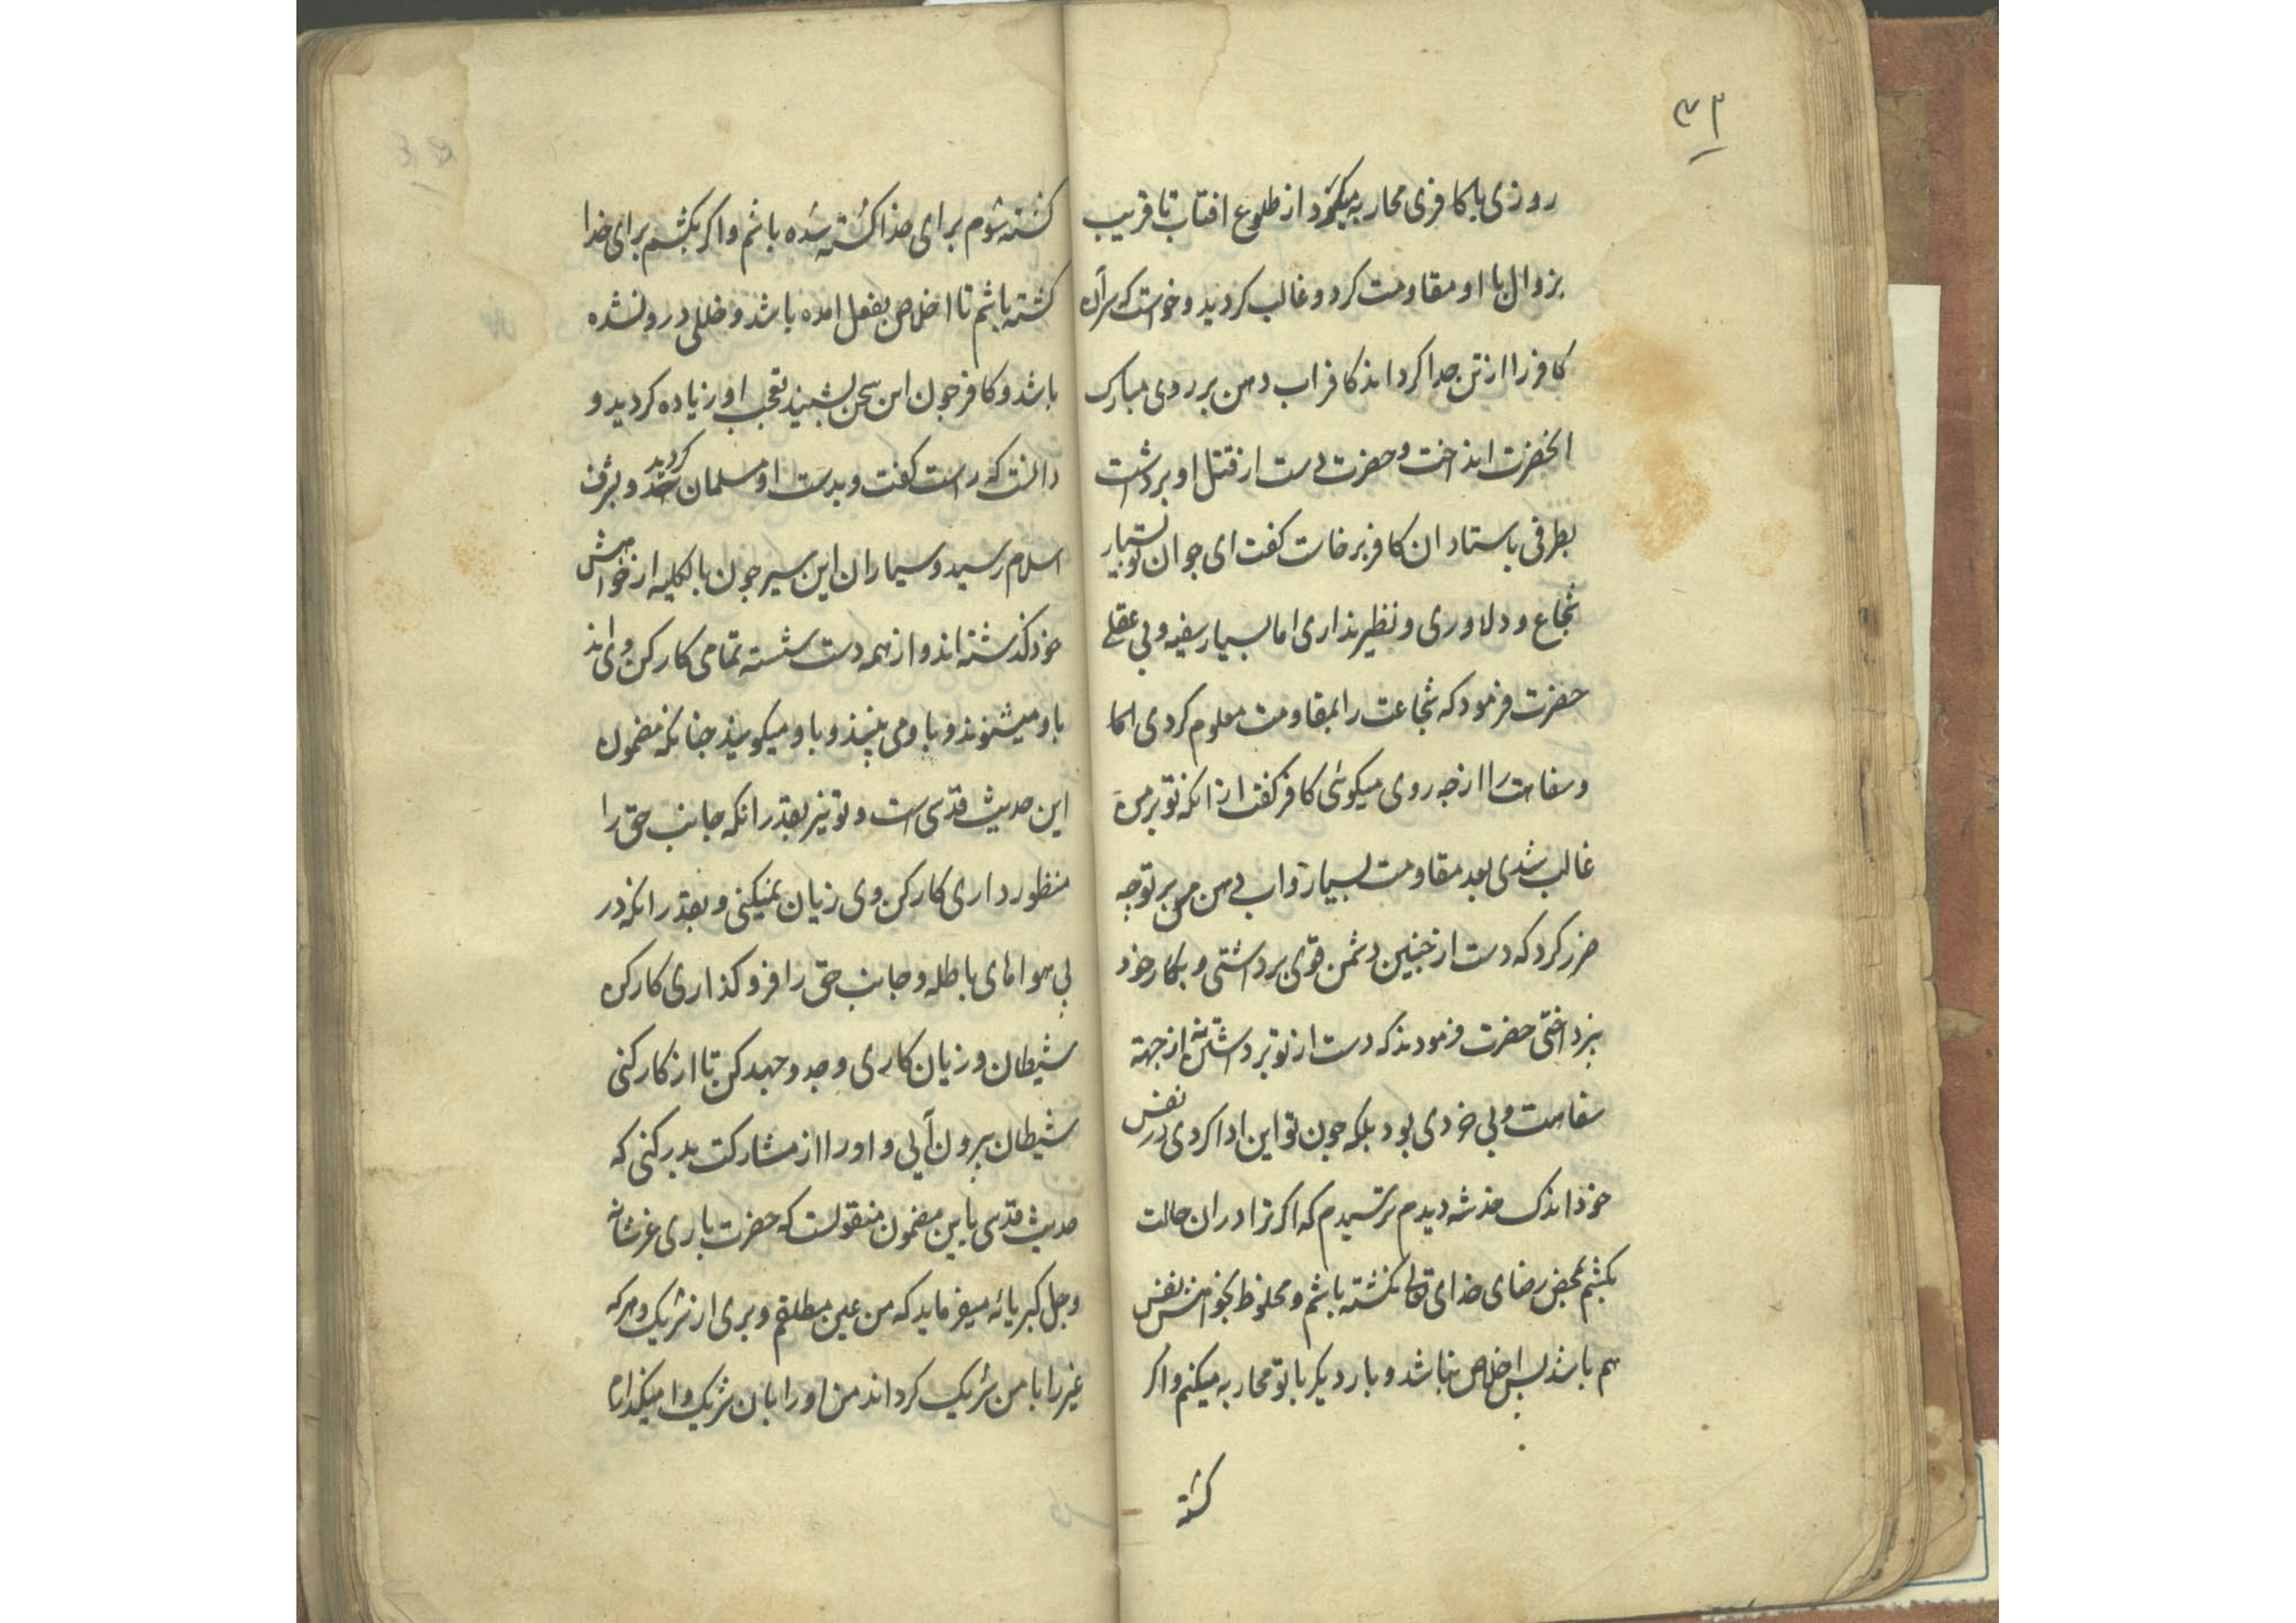 ۳۲
روزی با کافری محاربه میکرد از طلوع افتاب تا قریب
بزوال با او مقاومت کرد و غالب کردید و خواست که سر آن
کافر را از تن جدا کرداند کافر اب دهن بر روی مبارک
انحضرت انداخت و حضرت دست از قتل او برداشت
بطرفی باستاد ان کافر برخاست کفت ای جوان تو بسیار
شجاع و دلاوری و نظیر نداری اما بسیار سفیه و بی عقلی
حضرت فرمود که شجاعت را بمقاومت معلوم کردی اما
و سفاهت را از چه روی میکوئی کافر کفت از انکه تو بر من
غالب شدی بعد مقاومت بسیار و اب دهن من بر تو چه
ضرر کرد که دست از چنین دشمن قوی برداشتی و بکار خود
پرداختی حضرت فرمودند که دست از تو برداشتن نه از جهة
سفاهت و بی خردی بود بلکه چون تو این ادا کردی در نفس
خود اندک خدشه دیدم ترسیدم که اکر ترا در ان حالت
بکشم بمحض رضای خدای تعالی نکشته باشم و مخلوط بخواهش نفس
هم باشد پس اخلاص نباشد و بار دیکر با تو محاربه میکنم و اکر
کشته
کشته شوم برای خدا کشته شده باشم و اکر بکشم برای خدا
کشته باشم تا اخلاص بفعل امده باشد و خللی درو نشده
باشد و کافر چون این سخن بشنید تعجب او زیاده کردید و
دانست که راست کفت و بدست او مسلمان کردید و بشرف
اسلام رسید و سیماران این سیر چون بالکلیه از خواهش
خود کذشته اند و از همه دست شسته تمامی کارکن وی اند
باو میشنوند و باو می بینند و باو میکویند چنانکه مضمون
این حدیث قدسی است و تو نیز بقدر انکه جانب حق را
منظور داری کارکن وی زیان نمیکنی و بقدر انکه در
پی هواهای باطله و جانب حق را فرو کذاری کارکن
شیطان و زیان کاری و جد و جهد کن تا از کارکنی
شیطان بیرون آیی و او را از مشارکت بدر کنی که
حدیث قدسی باین مضمون منقولست که حضرت باری عز شانه
و جل کبریائه میفرماید که من غنی مطلقم و بری از شریک و هر که
غیر را با من شریک کرداند من او را بان شریک وا میکذارم